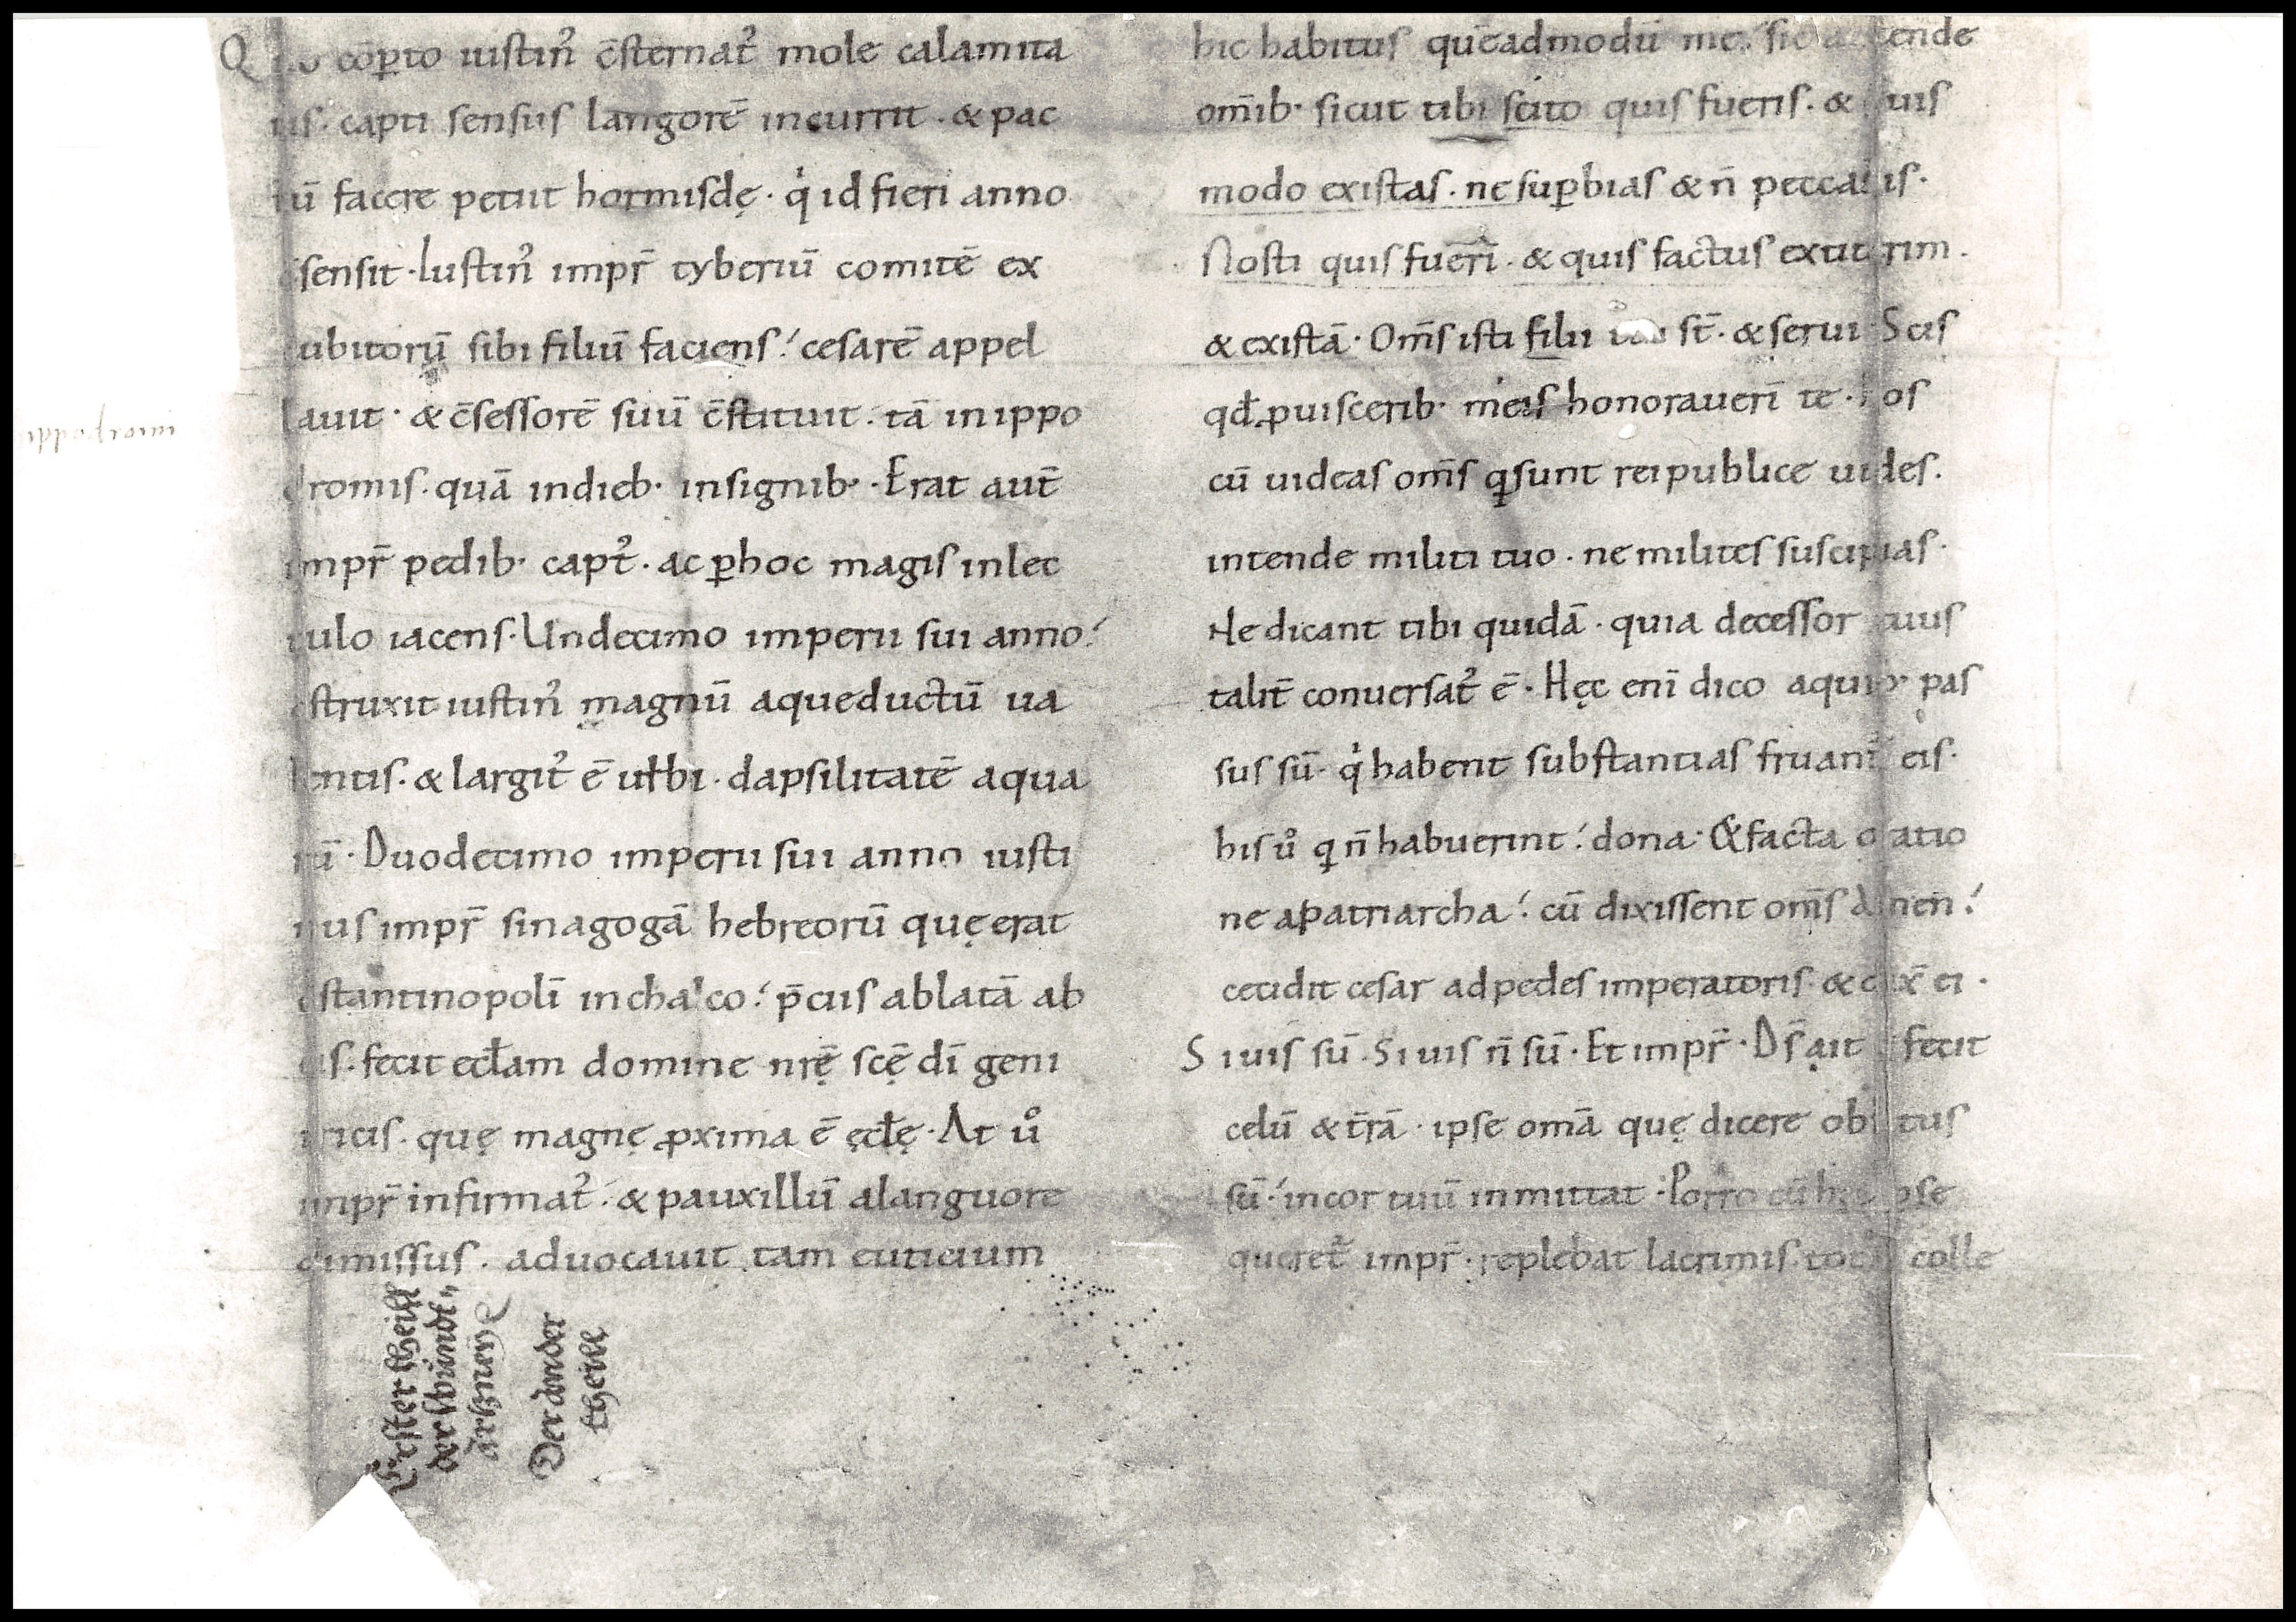 Quo cōꝑto iustin᷒ c̄sternat᷒ mole calamita
tis. capti sensus langorē incurrit. & pac
tū facere petiit hormisdę. q̇ id fieri anno
c̄sensit. Iustin᷒ impr̄ tyberiū comitē ex
cubitorū sibi filiū faciens! cesarē appel
lauit. & c̄sessorē suū c̄stituit. tā in ippo
dromis. quā in dieb· insignib·. Erat aut̄
impr̄ pedib· capt᷒. ac ꝑhoc magis in lec
tulo iacens. Undecimo imperii sui anno!
c̄struxit iustin᷒ magnū aqueductū ua
lentis. & largit᷒ ē urbi. dapsilitatē aqua
rū. Duodecimo imperii sui anno iusti
nus impr̄ sinagogā hebreorū quę erat
c̄stantinopolī in chalco! p̄cus ablatā ab
eis. fecit eccl̄am domine nr̄ę sc̄ę dī geni
tricis. quę magnę ꝓxima ē ęccl̄ę. At ů
impr̄ infirmat᷒. & pauxillū alanguore
dimissus. aduocauit tam euticium
Erster theill
der wundt"
artzney
Der ander
theill
hic habitus quēadmodū me. sic attende
om̄ib· sicut tibi scito quis fueris. & quis
modo existas. ne suꝑbias & n̄ peccabis.
Nosti quis fuerī. & quis factus extiterim.
& existā. Om̄s isti filii st̄. & serui. Scis
qd̄ ꝓuiscerib· meis honorauerī te. hos
cū uideas om̄s qͥ sunt reipublice uides.
intende militi tuo. ne milites suscipias.
Ne dicant tibi quidā. quia decessor tuus
talit̄ conuersat᷒ ē. Hęc enī dico aquib· pas
sus sū. q̇ habent substantias fruant᷒ eis.
his ů qͥ n̄ habuerint! dona. & facta oratio
ne apatriarcha! cū dixissent om̄s amen!
cecidit cesar ad pedes imperatoris. & dix̄ ei.
Si uis sū. Si uis n̄ sū. Et impr̄. Ds̄ ait qͥ fecit
celū & t̄rā. ipse om̄a quę dicere oblitus
sū. in cor tuū inmittat. Porro cū hęc ipse
queret᷒ impr̄. replebat lacrimis totū colle